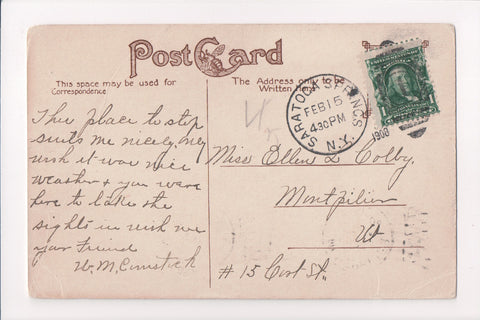 Post Card
This space may be used for
Correspondence
The Address only to be
Written Here
SARATOGA SPRINGS
FEB 15
430PM
N.Y.
1908
This place to stop
suits me nicely, only
wish it was nice
weather & you were
here to take the
sights in with me
your Friend
W. M. Comstock
Miss Ellen L Colby
Montpilier
Vt
# 15 Cort St.